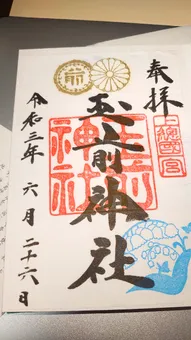 奉拝
上総國一宮
玉前神社
玉前神社
前
令和三年 六月 二十六日